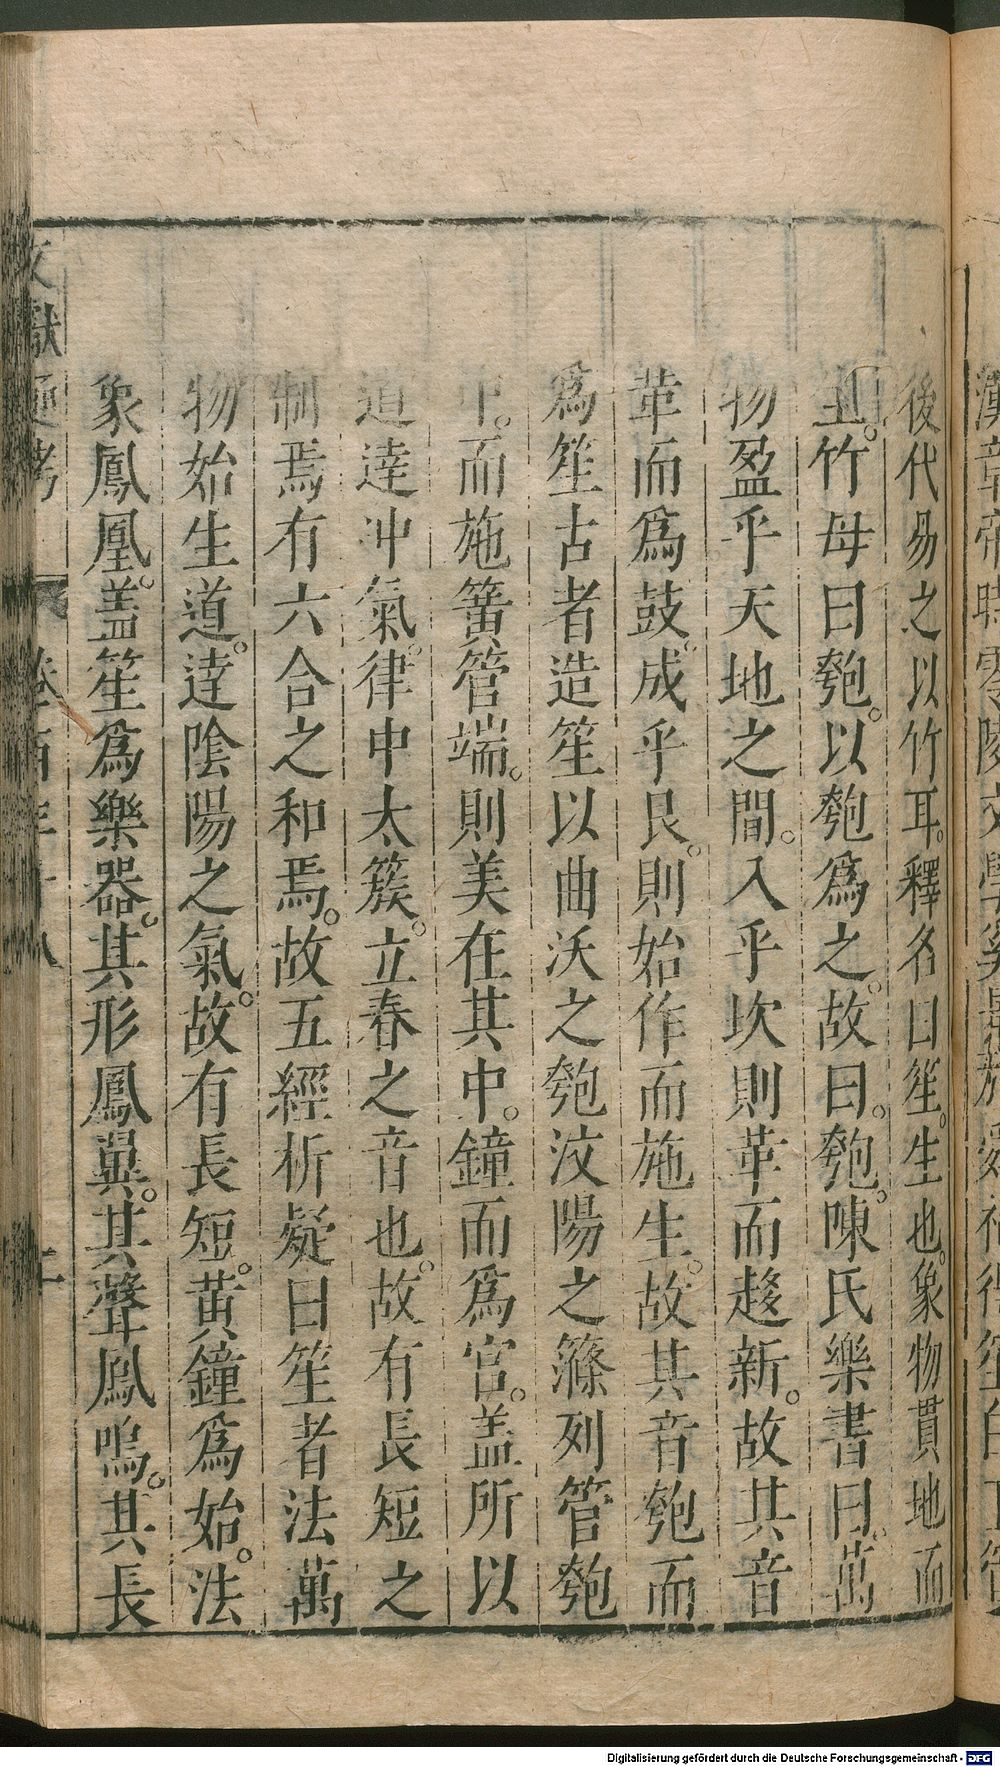 後代易之以竹耳。釋名曰笙。生也。象物貫地而
生。竹母曰匏。以匏爲之。故曰。匏。陳氏樂書曰。萬
物盈乎天地之間。入乎坎則革而趍新。故其音
革而爲鼓。成乎艮。則始作而施生。故其音匏而
爲笙古者造笙以曲沃之匏汶陽之篠列管匏
中。而施簧管端。則美在其中。鐘而爲宫。盖所以
道達冲氣。律中太簇。立春之音也。故有長短之
制焉有六合之和焉。故五經析疑曰笙者法萬
物始生道。達隂陽之氣。故有長短。黄鐘爲始。法
象鳳凰。盖笙爲樂器。其形鳳翼。其聲鳳鳴。其長
文獻通考 卷百三十八
Digitalisierung gefördert durch die Deutsche Forschungsgemeinschaft - DFG